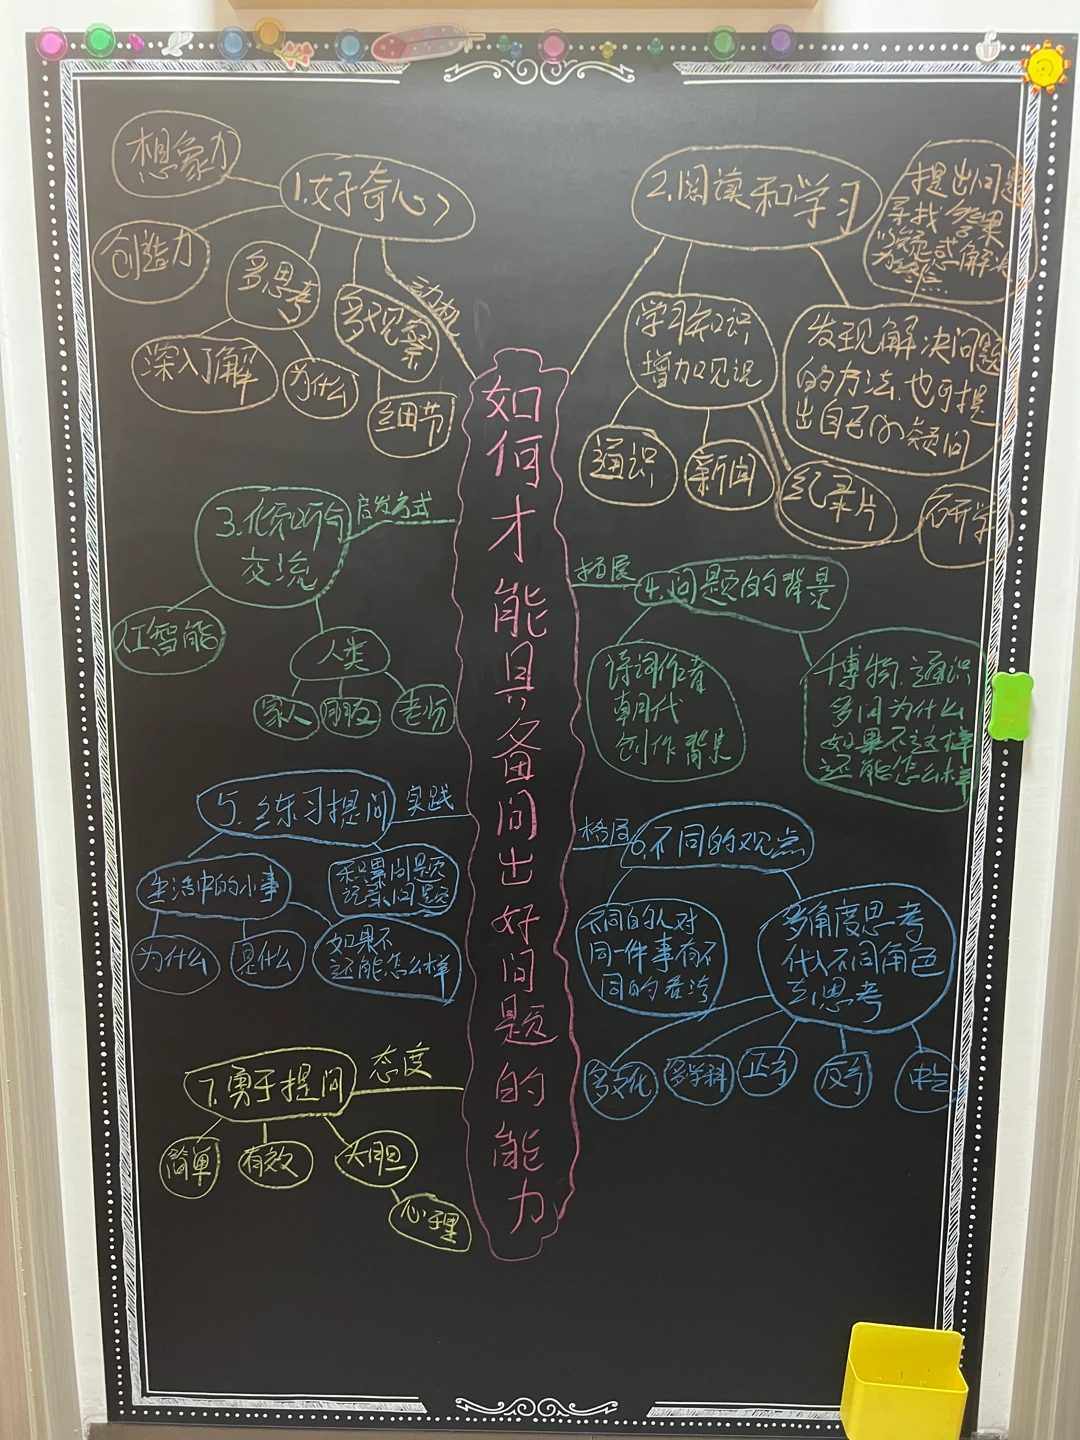 如何才能具备问出好问题的能力
1.好奇心
动机
想象力
创造力
多思考
深入了解
为什么
多观察
细节
2.阅读和学习
学习知识
增加见识
通识
新闻
纪录片
研学
发现解决问题
的方法.也可提
出自己的疑问
提出问题
寻找答案
以疑惑解决
为终点
3.倾听与
交流
启发方式
人工智能
人类
家人
朋友
老师
拓展
4.问题的背景
诗词作者
朝代
创作背景
博物.通识
多问为什么
如果不这样
还能怎么样
5.练习提问
实践
生活中的小事
为什么
是什么
如果不
还能怎么样
积累问题
记录问题
格局
6.不同的观点
不同的人对
同一件事有不
同的看法
多角度思考
代入不同角色
去思考
多文化
多学科
正方
反方
中立
7.勇于提问
态度
简单
有效
大胆
心理